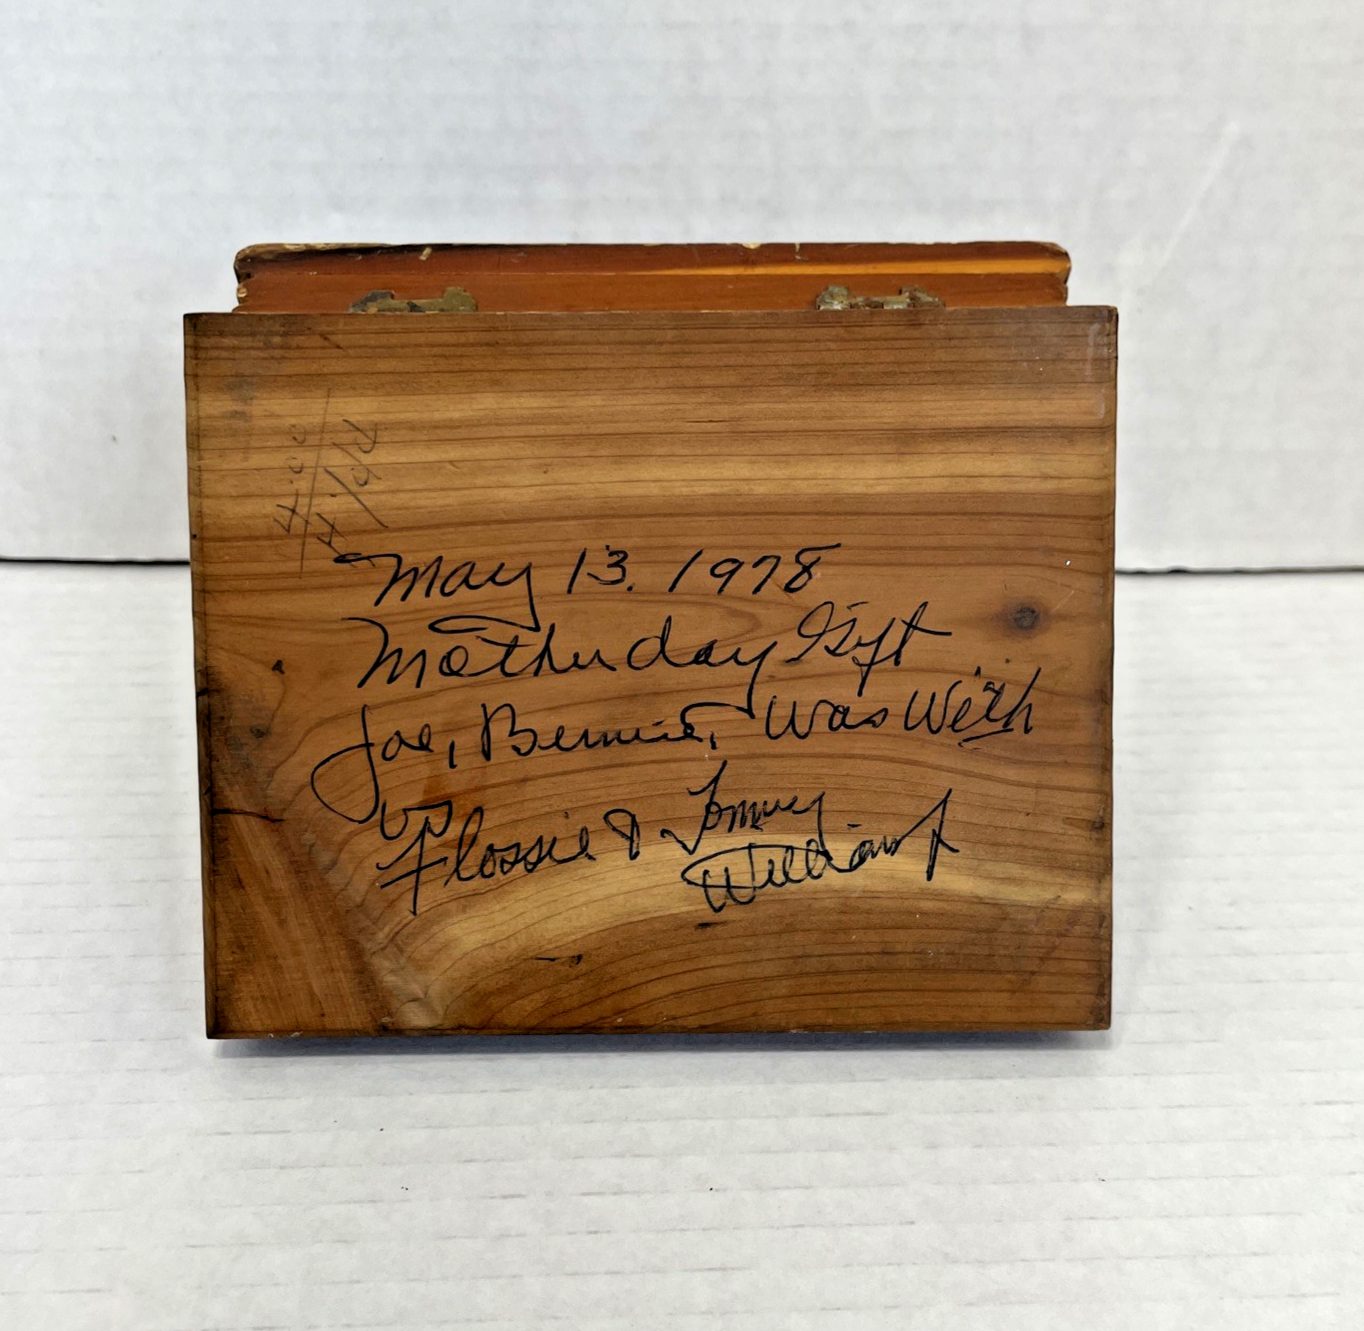 May 13. 1978
Mother day Gift
Joe, Bernice, Was With
us
Flossie & Tommy
Williams
4.00